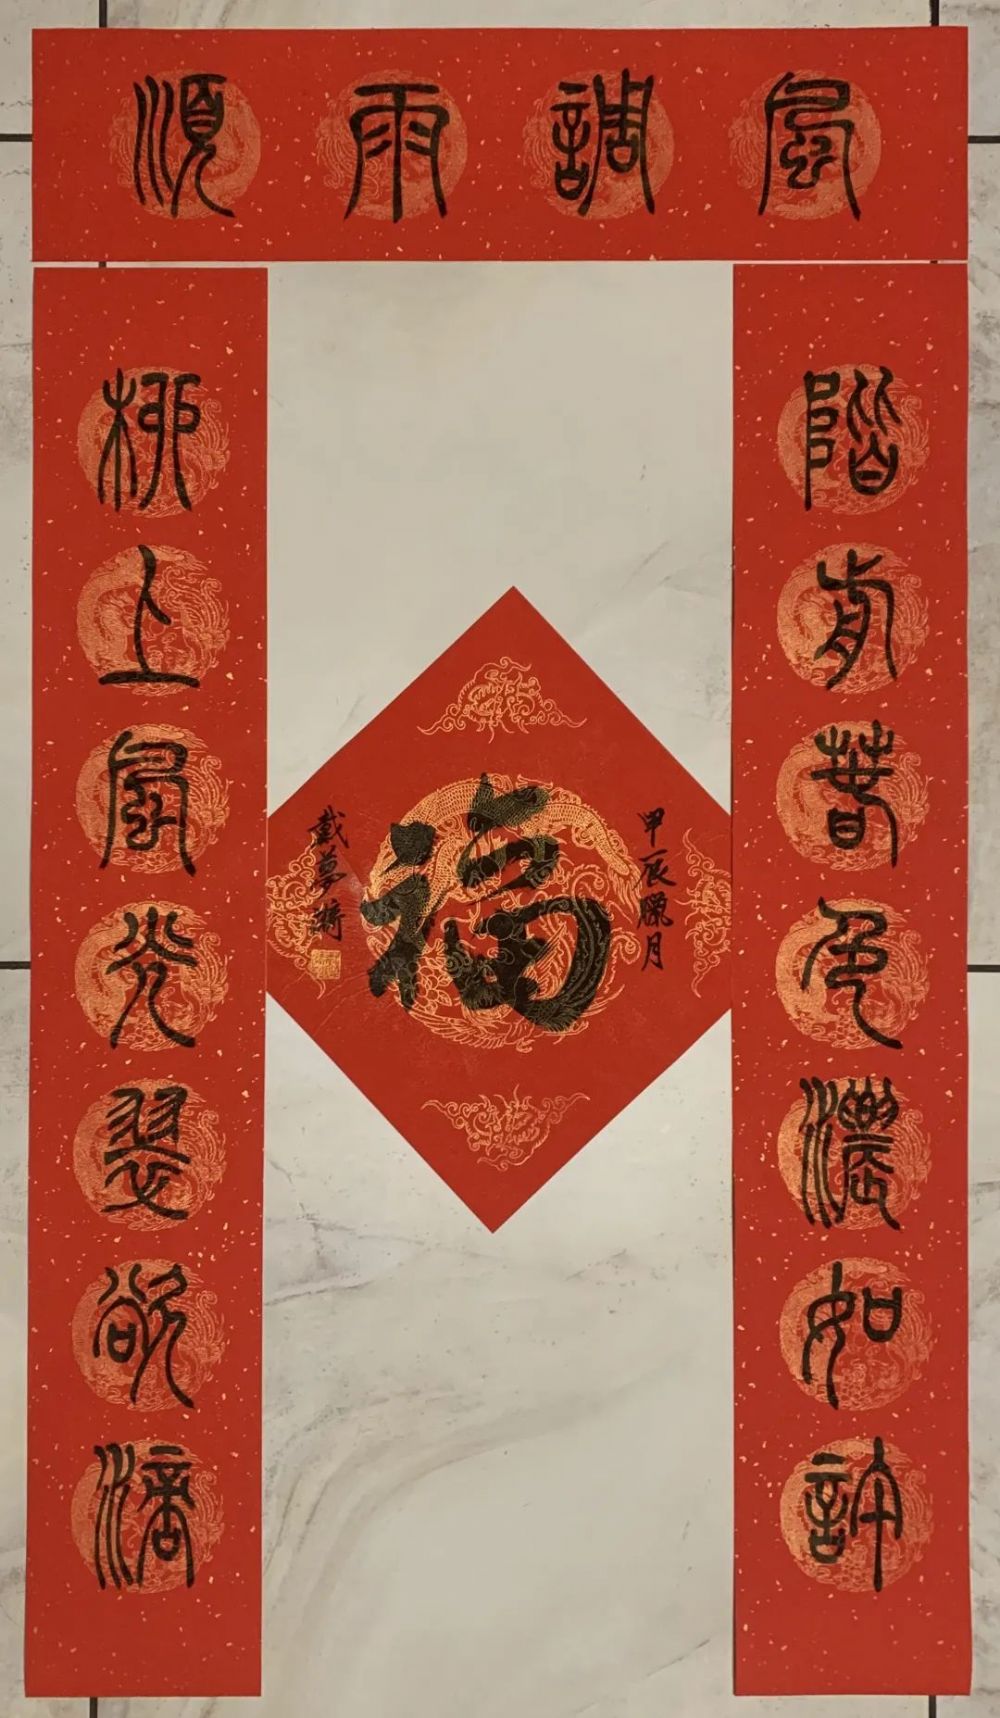 風調雨順
階前春色濃如許
柳上風光翠欲滴
甲辰臘月
福
戴夢